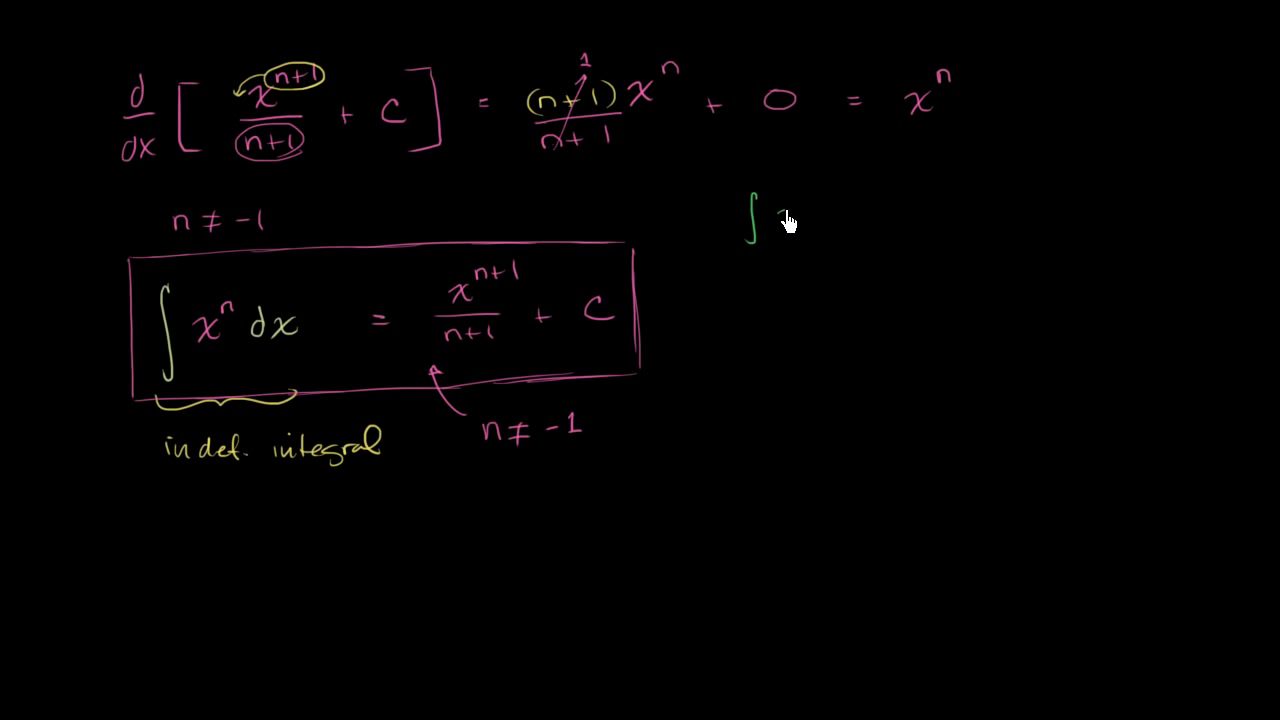 d/dx [ x^(n+1)/(n+1) + C ] = (n+1)x^n/(n+1) + 0 = x^n
1
n ≠ -1
∫
∫ x^n dx = x^(n+1)/(n+1) + C
n ≠ -1
indef. integral